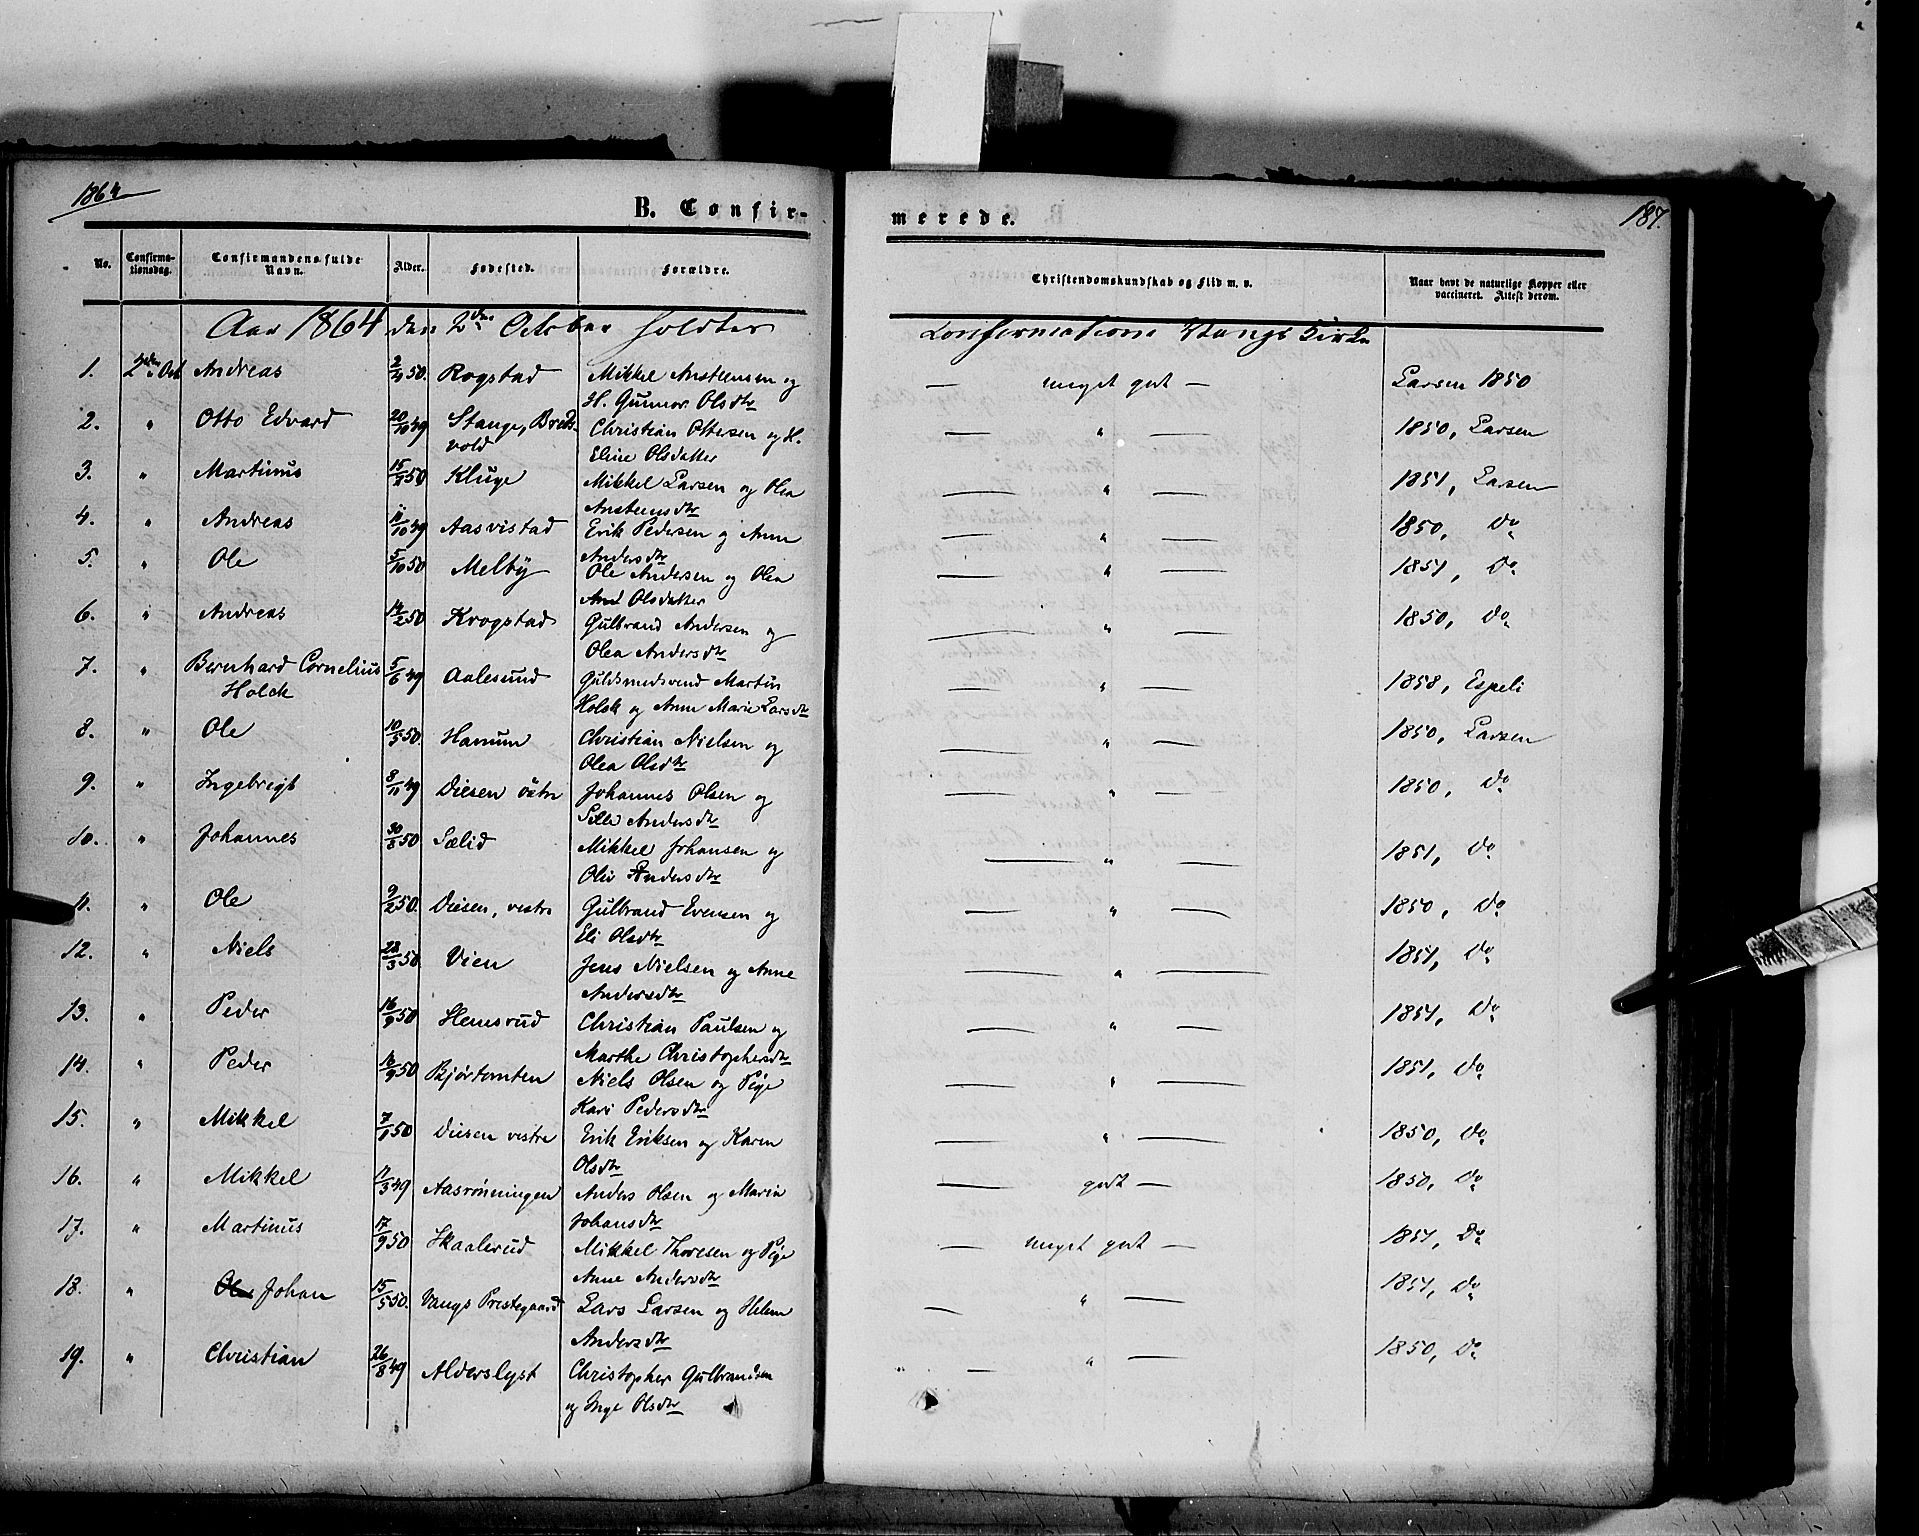 1864
B. Confir-
merede.
187.
No.
Confirma-
tionsdag.
Confirmandens fulde
Navn.
Alder.
Fødested.
Forældre.
Christendomskundskab og Flid m. v.
Naar havt de naturlige Kopper eller
vaccineret. Attest derom.
Aar 1864 den 2den October holdtes Confirmation i Vangs Kirke
1. 2den Oct Andreas 2/4 50. Rogstad Mikkel Ansteensen og — meget godt — Larsen 1850
H. Gunnor Olsdtr
2. " Otto Edvard 20/10 49 Stange, Breds- Christian Ottersen og H. — " — 1850, Larsen
vold Eline Olsdatter
3. " Martinus 15/ 50 Kluge Mikkel Larsen og Olea — " — 1851, Larsen
Ansteensdtr
4. " Andreas 11/10 49 Aasvistad Erik Pedersen og Anne — " — 1850, Do
Andersdtr
5. " Ole 5/10 50 Melby Ole Andersen og Olea — " — 1851, Do
Olsdatter
6. " Andreas 14/2 50 Krogstad Gulbrand Andersen og — " — 1850, Do
Olea Andersdtr
7. " Bernhard Cornelius 5/6 49 Aalesund Guldsmedsvend Martin — " — 1858, Espeli
Holck Holck og Anne Marie Larsdtr
8. " Ole 10/5 50. Hanum Christian Nielsen og — " — 1850, Larsen
Olea Olsdtr
9. " Ingebrigt 8/11 49 Diesen östre Johannes Olsen og — " — 1850, Do
Sille Andersdtr
10. " Johannes 30/8 50 Sælid Mikkel Johansen og — " — 1851, Do
Oliv Andersdtr
11. " Ole 9/2 50. Diesen, vestre Gulbrand Evensen og — " — 1850, Do
Eli Olsdtr
12. " Niels 28/3 50 Vien Jens Nielsen og Anne — " — 1851, Do
Andersdtr
13. " Peder 16/9 50 Hemsrud Christian Paulsen og — " — 1851, Do
Marthe Christophersdtr
14. " Peder 16/9 50 Bjørtomten Niels Olsen og Pige — " — 1851, Do
Kari Pedersdtr
15. " Mikkel 7/1 50 Diesen vestre Erik Eriksen og Karen — " — 1850, Do
Olsdtr
16. " Mikkel 11/3 49 Aasrønningen Anders Olsen og Maria — godt — 1850, Do
Johansdtr
17. " Martinus 17/9 50 Skaalerud Mikkel Thoresen og Pige — meget godt — 1851, Do
Anne Andersdtr
18. " Ole Johan 15/5 50. Vangs Prestegaard Lars Larsen og Helene — " — 1851, Do
Andersdtr
19. " Christian 26/8 49 Alderslyst Christopher Gulbrandsen — " — 1850, Do
og Inge Olsdtr